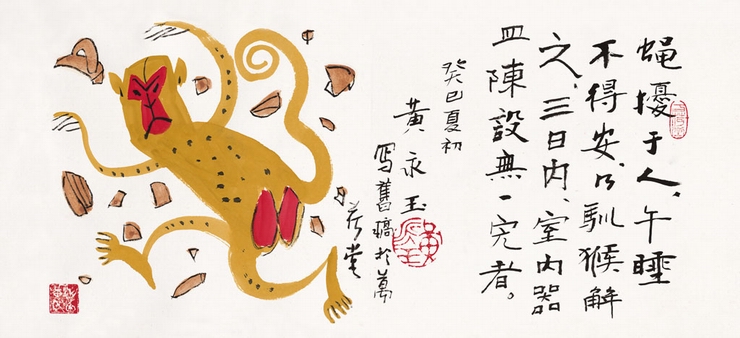 蝇擾于人、午睡
不得安、乃馴猴解
之、三日内、室内器
皿陳設無一完者。
癸巳夏初
黄永玉
寫舊稿於萬
荷堂